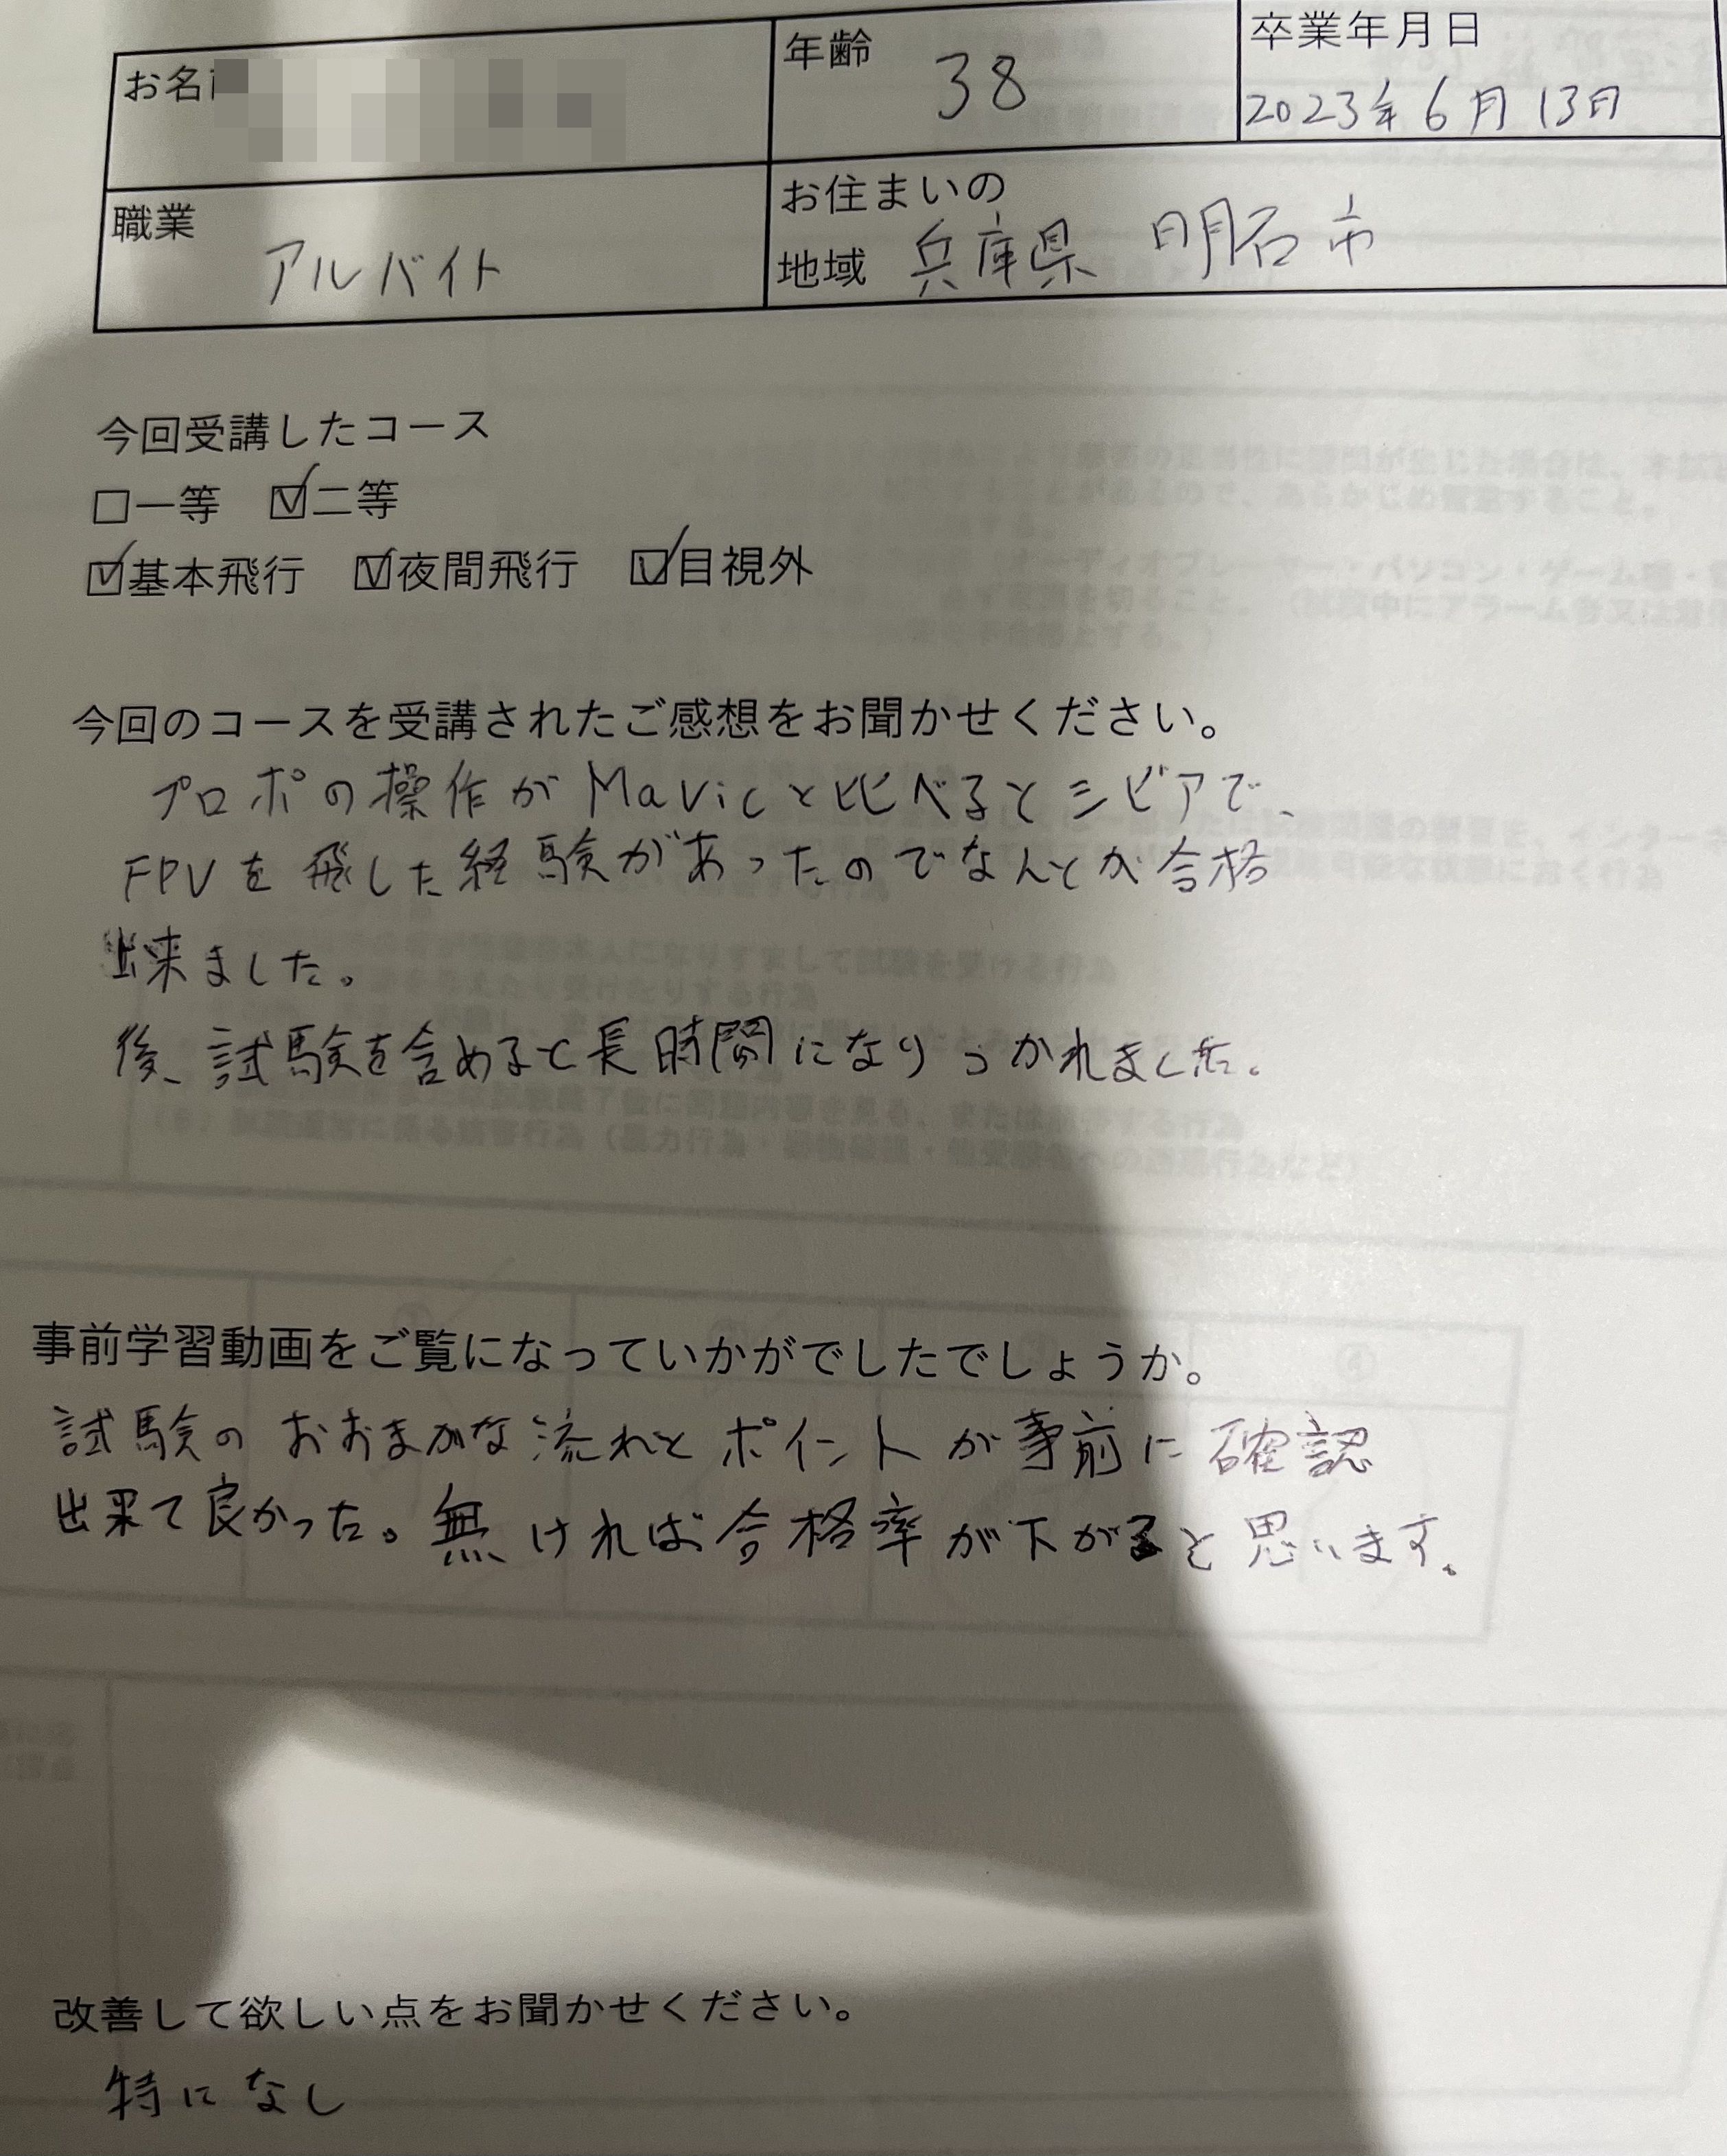 お名
年齢 38
卒業年月日
2023年6月13日
職業
アルバイト
お住まいの
地域 兵庫県 明石市
今回受講したコース
□一等 ☑二等
☑基本飛行 ☑夜間飛行 ☑目視外
今回のコースを受講されたご感想をお聞かせください。
プロポの操作がMavicと比べるとシビアで、
FPVを飛した経験があったのでなんとか合格
出来ました。
後、試験を含めると長時間になりつかれました。
事前学習動画をご覧になっていかがでしたでしょうか。
試験のおおまかな流れとポイントが事前に確認
出来て良かった。無ければ合格率が下がると思います。
改善して欲しい点をお聞かせください。
特になし